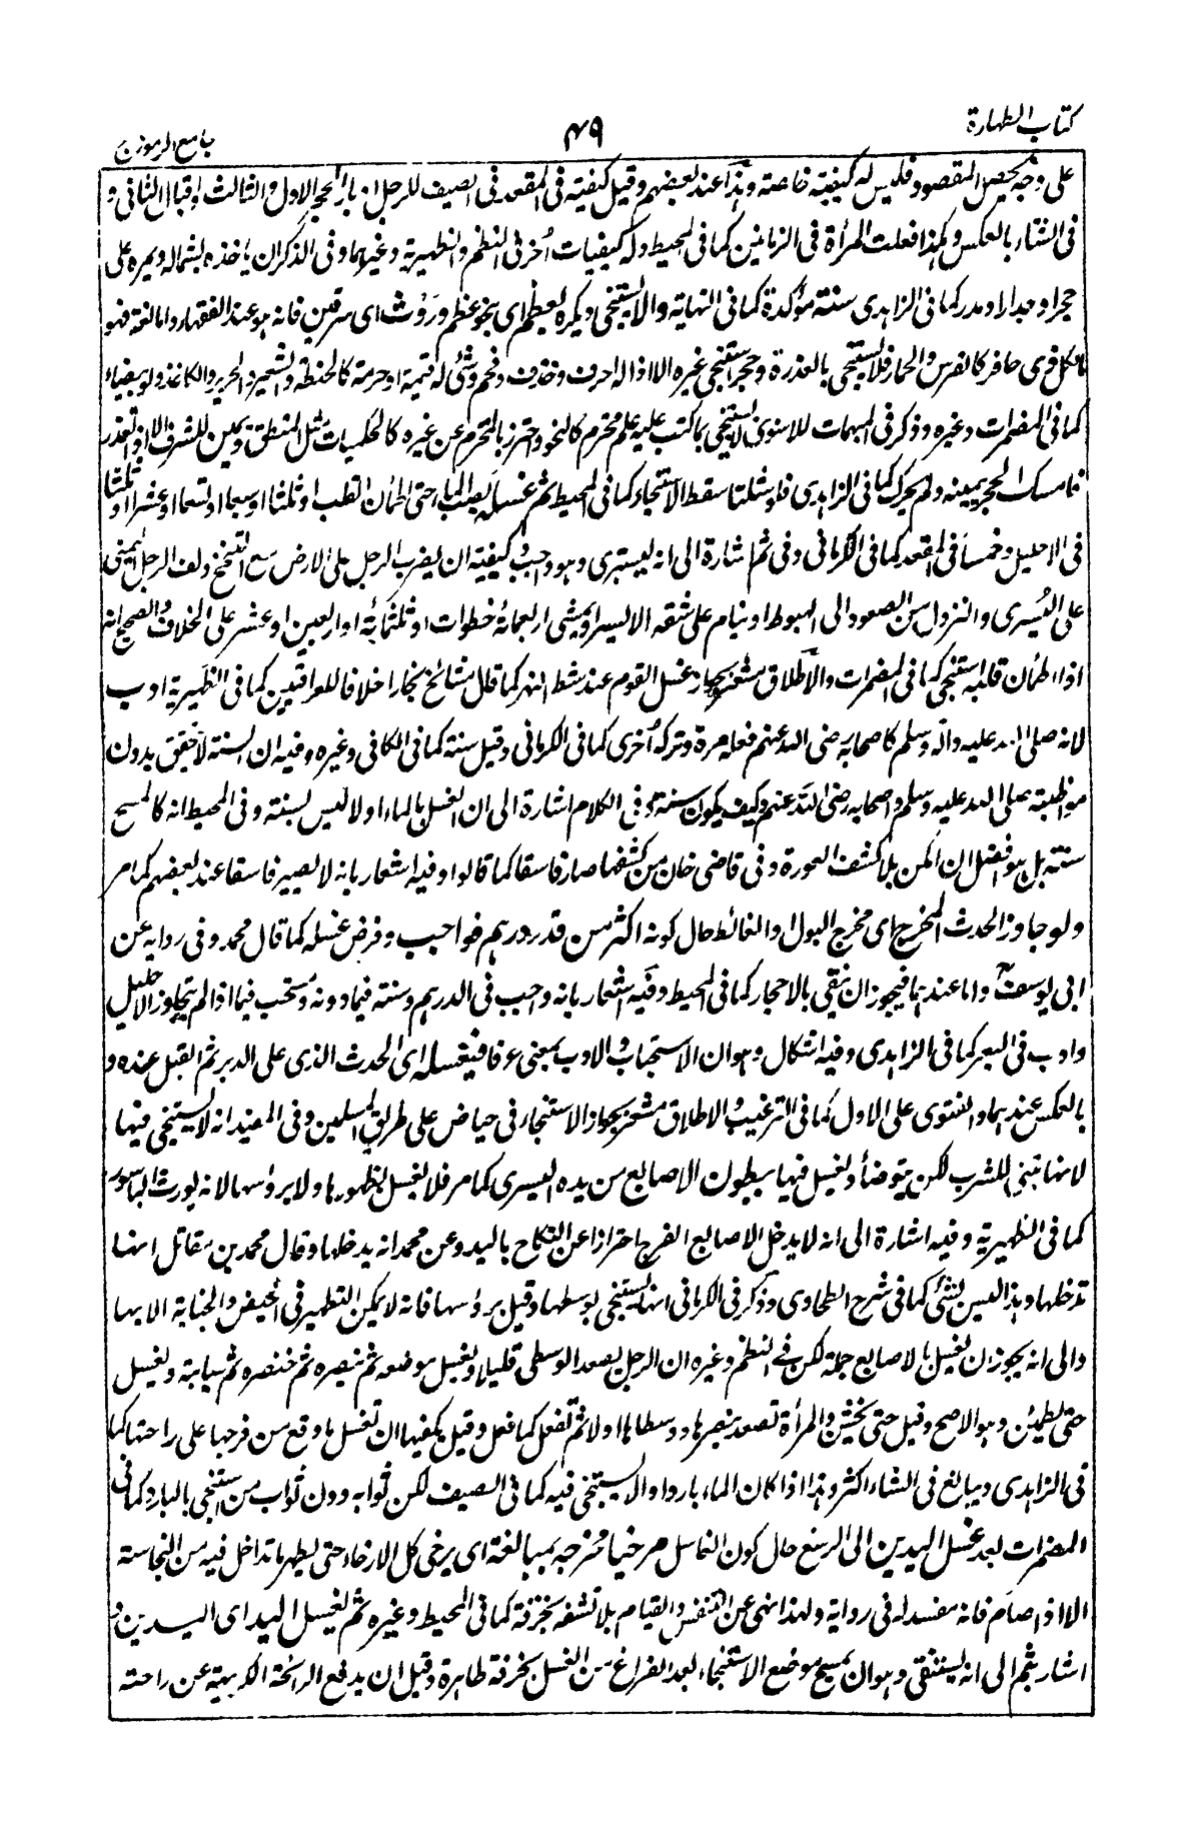 كتاب الطهارة
٤٩
جامع الرموز ج
على وجه يحصل المقصود فليس له كيفية خاصة وهذا عند بعضهم وقيل كيفيته فى المقعد فى الصيف للرجل ادبار الحجر الاول والثالث واقبال الثانى و
فى الشتاء بالعكس وهكذا فعلت المرأة فى الزمانين كما فى المحيط وله كيفيات أخر فى النظم والظهيرية وغيرهما وفى الذكر ان ياخذه بشماله ويمره على
حجر او جدار او مدر كما فى الزاهدى سنة مؤكدة كما فى النهاية والا يستنجى ويكره بعظم اى بنحو عظم وروث اى سرقين فانه هو عند الفقهاء واما لغة فهو
لكل ذى حافر كالفرس والحمار فلا يستنجى بالعذرة وحجر استنجى غيره الا اذا له حرف وخذف وفحم وشئ له قيمة او حرمة كالحنطة والشعير والحرير والكاغذ ولو بيضاء
كما فى المضمرات وغيره وذكر فى المهمات للاسنوى لا يستنجى بما كتب عليه علم محترم كالنحو واحترز بالمحترم عن غيره كالحكميات مثل المنطق ويمين للشرف الا اذا تعذر
فامسك الحجر بيمينه ولم يحرك كما فى الزاهدى فلو شلتا سقط الاستنجاء كما فى المحيط ثم غسله بصب الماء حتى اطمأن القلب او ثلثا او سبعا او تسعا او عشرا او ثلثا
فى الاحليل وخمسا فى المقعد كما فى الكرمانى وفى ثم اشارة الى انه يستبرى وهو واجب وكيفيته ان يضرب الرجل على الارض مع التنحنح ولف الرجل اليمنى
على اليسرى والنزول من الصعود الى الهبوط او ينام على شقه الايسر او يمشى اربعمائة خطوات او ثلثمائة او اربعين او عشر على الخلاف والصحيح انه
اذا اطمأن قلبه استنجى كما فى المضمرات والاطلاق مشعر بجواز غسل القوم عند شط النهر كما قال مشائخ بخارا خلافا للعراقيين كما فى الظهيرية ادب
لانه صلى الله عليه وآله وسلم كاصحابه رضى الله عنهم فعله مرة وتركه أخرى كما فى الكرمانى وقيل سنة كما فى الكافى وغيره وفيه ان السنة لا تحقق بدون
مواظبته صلى الله عليه وسلم واصحابه رضى الله عنهم وكيف يكون سنة وفى الكلام اشارة الى ان الغسل بالماء اولا ليس بسنة وفى المحيط انه كالمسح
سنة بل هو افضل ان امكن بلا كشف العورة وفى قاضى خان من كشفها صار فاسقا كما قالوا وفيه اشعار بانه لا يصير فاسقا عند بعضهم كما مر
ولو جاوز الحدث المخرج اى مخرج البول والغائط حال كونه اكثر من قدر درهم فواجب وفرض غسله كما قال محمد وفى رواية عن
ابى يوسف واما عندهما فيجوز ان ينقى بالاحجار كما فى المحيط وفيه اشعار بانه واجب فى الدرهم وسنة فيما دونه ومستحب فيما اذا لم يتجاوز الاحليل
وادب فى البعر كما فى الزاهدى وفيه اشكال وهو ان الاستحباب والادب بمعنى عرفا فيغسله اى الحدث الذى على الدبر ثم القبل عنده و
بالعكس عندهما والفتوى على الاول كما فى الترغيب والاطلاق مشعر بجواز الاستنجاء فى حياض على طريق المسلمين وفى المفيد انه لا يستنجى فيها
لانها تبنى للشرب لكن يتوضأ ويغسل فيها ببطون الاصابع من يده اليسرى كما مر فلا يغسل بظهورها ولا برؤسها لانه يورث الباسور
كما فى الظهيرية وفيه اشارة الى انه لا يدخل الاصابع الفرج احترازا عن النكاح باليد وعن محمد انه يدخلها وقال محمد بن مقاتل انها
تدخلها وهذا ليس بشئ كما فى شرح الطحاوى وذكر فى الكرمانى انها يستنجى بوسطها وقيل برؤسها فانه لا يمكن التطهير فى الحيض والجنابة الا بها
والى انه يجوز ان يغسل بالاصابع جملة لكن فى النظم وغيره ان الرجل يصعد الوسطى قليلا ويغسل موضعه ثم بنصره ثم خنصره ثم سبابته ويغسل
حتى يطمئن وهو الاصح وقيل حتى يخشن والمرأة تصعد بنصرها ووسطاها اولا ثم تفعل كما فعل وقيل يكفيها ان تغسل ما وقع من فرجها على راحتها كما
فى الزاهدى ويبالغ فى الشتاء اكثر وهذا اذا كان الماء باردا والا يستنجى فيه كما فى الصيف لكن ثوابه دون ثواب من استنجى بالبارد كما فى
المضمرات بعد غسل اليدين الى الرسغ حال كون الغاسل مرخيا مخرجه بمبالغة اى يرخى كل الارخاء حتى يطهر ما تداخل فيه من النجاسة
الا اذا صام فانه مفسد له فى رواية ولهذا نهى عن التنفس والقيام بلا تنشفه بخرقة كما فى المحيط وغيره ثم يغسل اليد اى اليدين و
اشار بثم الى انه يستنقى وهو ان يمسح موضع الاستنجاء بعد الفراغ من الغسل بخرقة طاهرة وقيل ان يدفع الرائحة الكريهة عن راحته